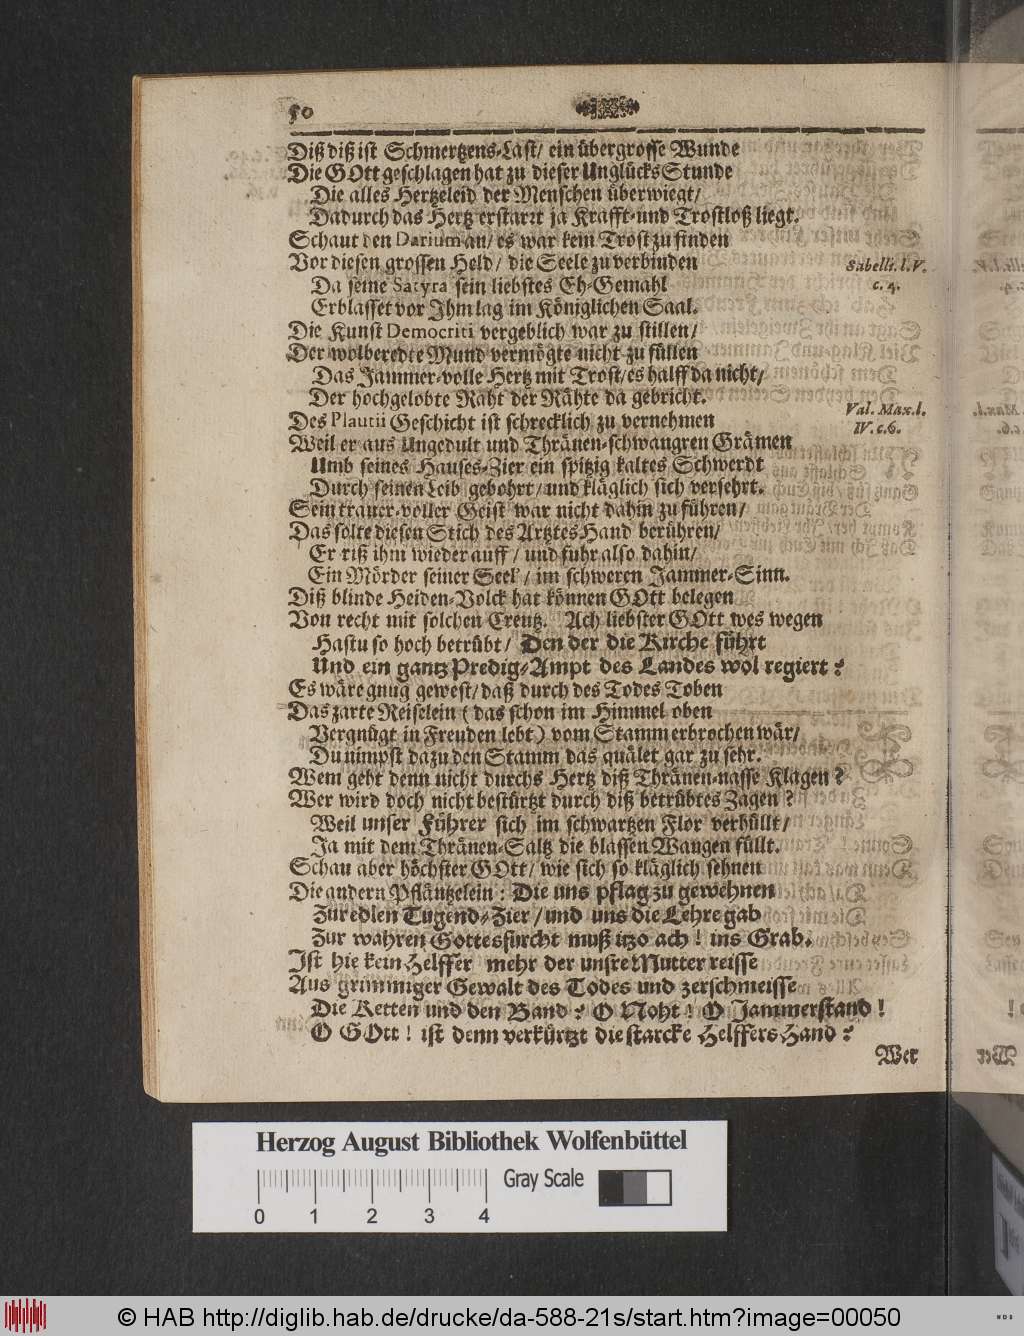 50
Diß diß ist Schmertzens-Last/ ein übergrosse Wunde
Die GOtt geschlagen hat zu dieser UnglücksStunde
Die alles Hertzeleid der Menschen überwiegt/
Dadurch das Hertz erstarrt ja Krafft-und Trostloß liegt.
Schaut den Darium an/ es war kein Trost zu finden
Vor diesen grossen Held/ die Seele zu verbinden
Sabelli. l. V.
c. 4.
Da seine Satyra sein liebstes Eh-Gemahl
Erblasset vor Ihm lag im Königlichen Saal.
Die Kunst Democriti vergeblich war zu stillen/
Der wolberedte Mund vermögte nicht zu füllen
Das Jammer-volle Hertz mit Trost/ es halff da nicht/
Der hochgelobte Raht der Rähte da gebricht.
Des Plautii Geschicht ist schrecklich zu vernehmen
Val. Max. l.
IV. c. 6.
Weil er aus Ungedult und Thränen-schwangren Grämen
Umb seines Hauses-Zier ein spitzig kaltes Schwerdt
Durch seinen Leib gebohrt/ und kläglich sich versehrt.
Sein traur-voller Geist war nicht dahin zu führen/
Das solte diesen Stich des Artztes Hand berühren/
Er riß ihm wieder auff / und fuhr also dahin/
Ein Mörder seiner Seel' / im schweren Jammer-Sinn.
Diß blinde Heiden-Volck hat können GOtt belegen
Von recht mit solchen Creutz. Ach liebster GOtt wes wegen
Hastu so hoch betrübt/ Den der die Kirche führt
Und ein gantz Predig-Ampt des Landes wol regiert?
Es wäre gnug gewest/ daß durch des Todes Toben
Das zarte Reiselein ( das schon im Himmel oben
Vergnügt in Freuden lebt ) vom Stamm erbrochen wär/
Du nimpst dazu den Stamm das quälet gar zu sehr.
Wem geht denn nicht durchs Hertz diß Thränen-nasse Klagen?
Wer wird doch nicht bestürtzt durch diß betrübtes Zagen?
Weil unser Führer sich im schwartzen Flor verhüllt/
Ja mit dem Thränen-Saltz die blassen Wangen füllt.
Schau aber höchster GOtt/ wie sich so kläglich sehnen
Die andern Pfläntzelein: Die uns pflag zu gewehnen
Zur edlen Tugend-Zier/ und uns die Lehre gab
Zur wahren Gottesfurcht muß itzo ach! ins Grab.
Ist hie kein Helffer mehr der unsre Mutter reisse
Aus grimmiger Gewalt des Todes und zerschmeisse
Die Ketten und den Band? O Noht! O Jammerstand!
O GOtt! ist denn verkürtzt die starcke Helffers Hand?
Wer
Herzog August Bibliothek Wolfenbüttel
Gray Scale
0 1 2 3 4
© HAB http://diglib.hab.de/drucke/da-588-21s/start.htm?image=00050